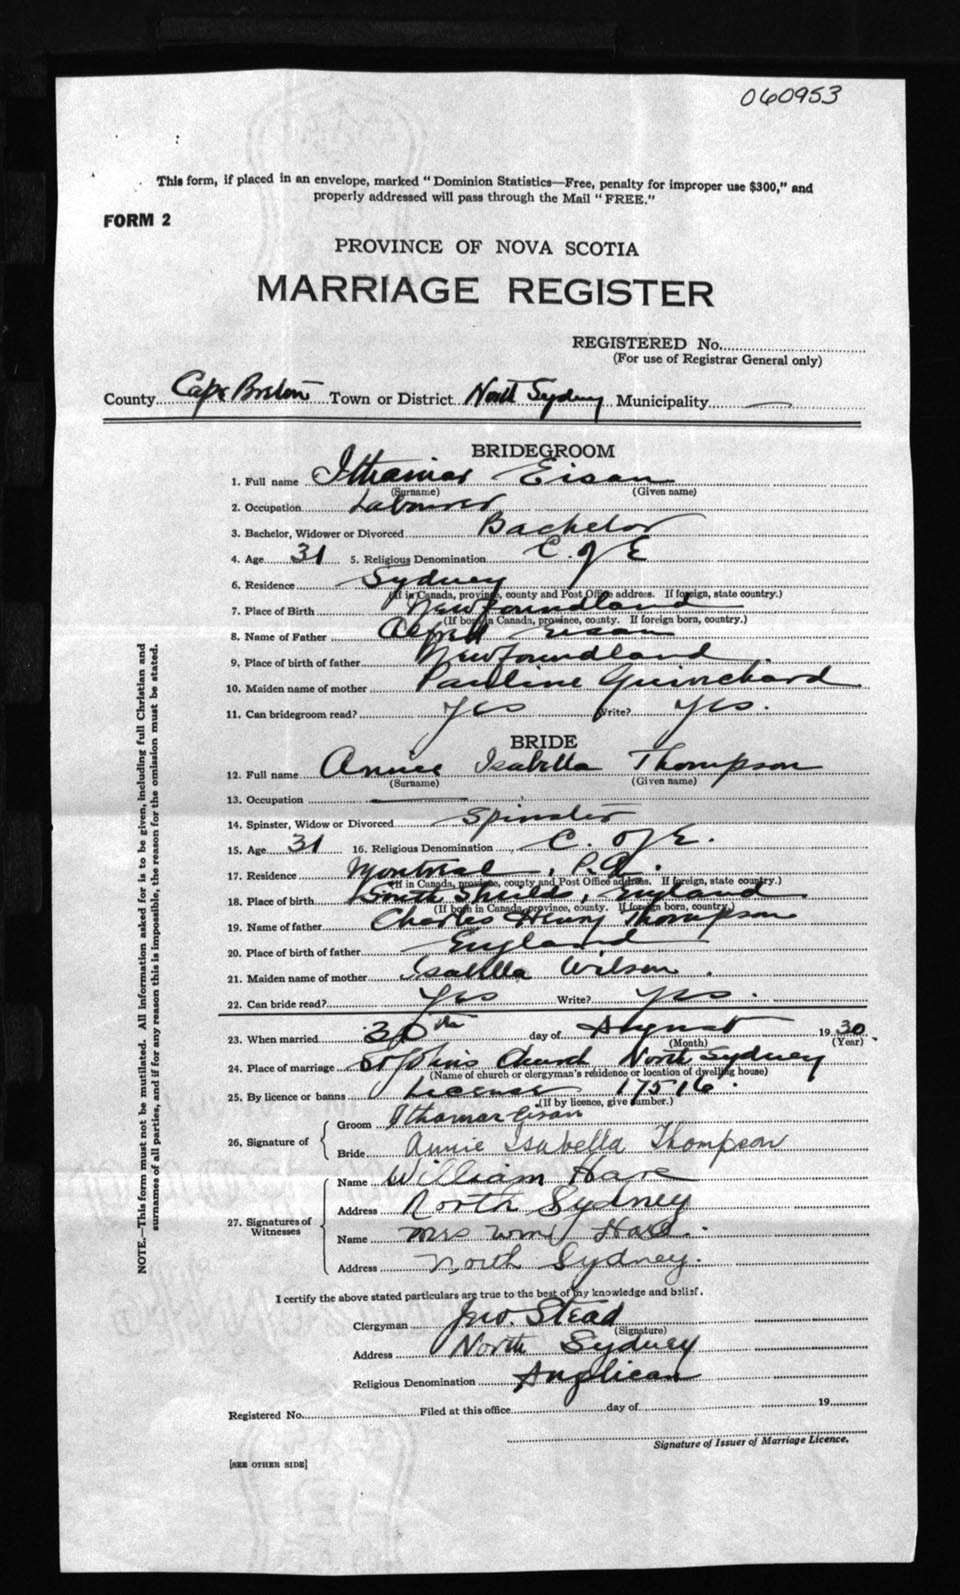 060953
This form, if placed in an envelope, marked "Dominion Statistics—Free, penalty for improper use $300," and
properly addressed will pass through the Mail "FREE."
FORM 2
PROVINCE OF NOVA SCOTIA
MARRIAGE REGISTER
REGISTERED No.
(For use of Registrar General only)
County Cape Breton Town or District North Sydney Municipality —
BRIDEGROOM
1. Full name Ithamar Eisan
(Surname) (Given name)
2. Occupation Labourer
3. Bachelor, Widower or Divorced Bachelor
4. Age 31 5. Religious Denomination C. of E
6. Residence Sydney
(If in Canada, province, county and Post Office address. If foreign, state country.)
7. Place of Birth Newfoundland
(If born in Canada, province, county. If foreign born, country.)
8. Name of Father Alfred Eisan
9. Place of birth of father Newfoundland
10. Maiden name of mother Pauline
11. Can bridegroom read? Yes Write? Yes.
BRIDE
12. Full name Annie Isabella Thompson
(Surname) (Given name)
13. Occupation —
14. Spinster, Widow or Divorced Spinster
15. Age 31 16. Religious Denomination C. of E.
17. Residence Montreal, P.Q.
(If in Canada, province, county and Post Office address. If foreign, state country.)
18. Place of birth South Shields, England
(If born in Canada, province, county. If foreign born, country.)
19. Name of father Charles Henry Thompson
20. Place of birth of father England
21. Maiden name of mother Isabella Wilson.
22. Can bride read? Yes Write? Yes.
23. When married 30th day of August 1930
(Month) (Year)
24. Place of marriage St John's Church North Sydney
(Name of church or clergyman's residence or location of dwelling house)
25. By licence or banns License 17516.
(If by licence, give number.)
26. Signature of
Groom Ithamar Eisan
Bride Annie Isabella Thompson
27. Signatures of Witnesses
Name William Hare
Address North Sydney
Name Mrs Wm Hare.
Address North Sydney.
I certify the above stated particulars are true to the best of my knowledge and belief.
Clergyman Jno. Stead
(Signature)
Address North Sydney
Religious Denomination Anglican
Registered No. Filed at this office day of 19
Signature of Issuer of Marriage Licence.
[SEE OTHER SIDE]
NOTE.—This form must not be mutilated. All information asked for is to be given, including full Christian and
surnames of all parties, and if for any reason this is impossible, the reason for the omission must be stated.